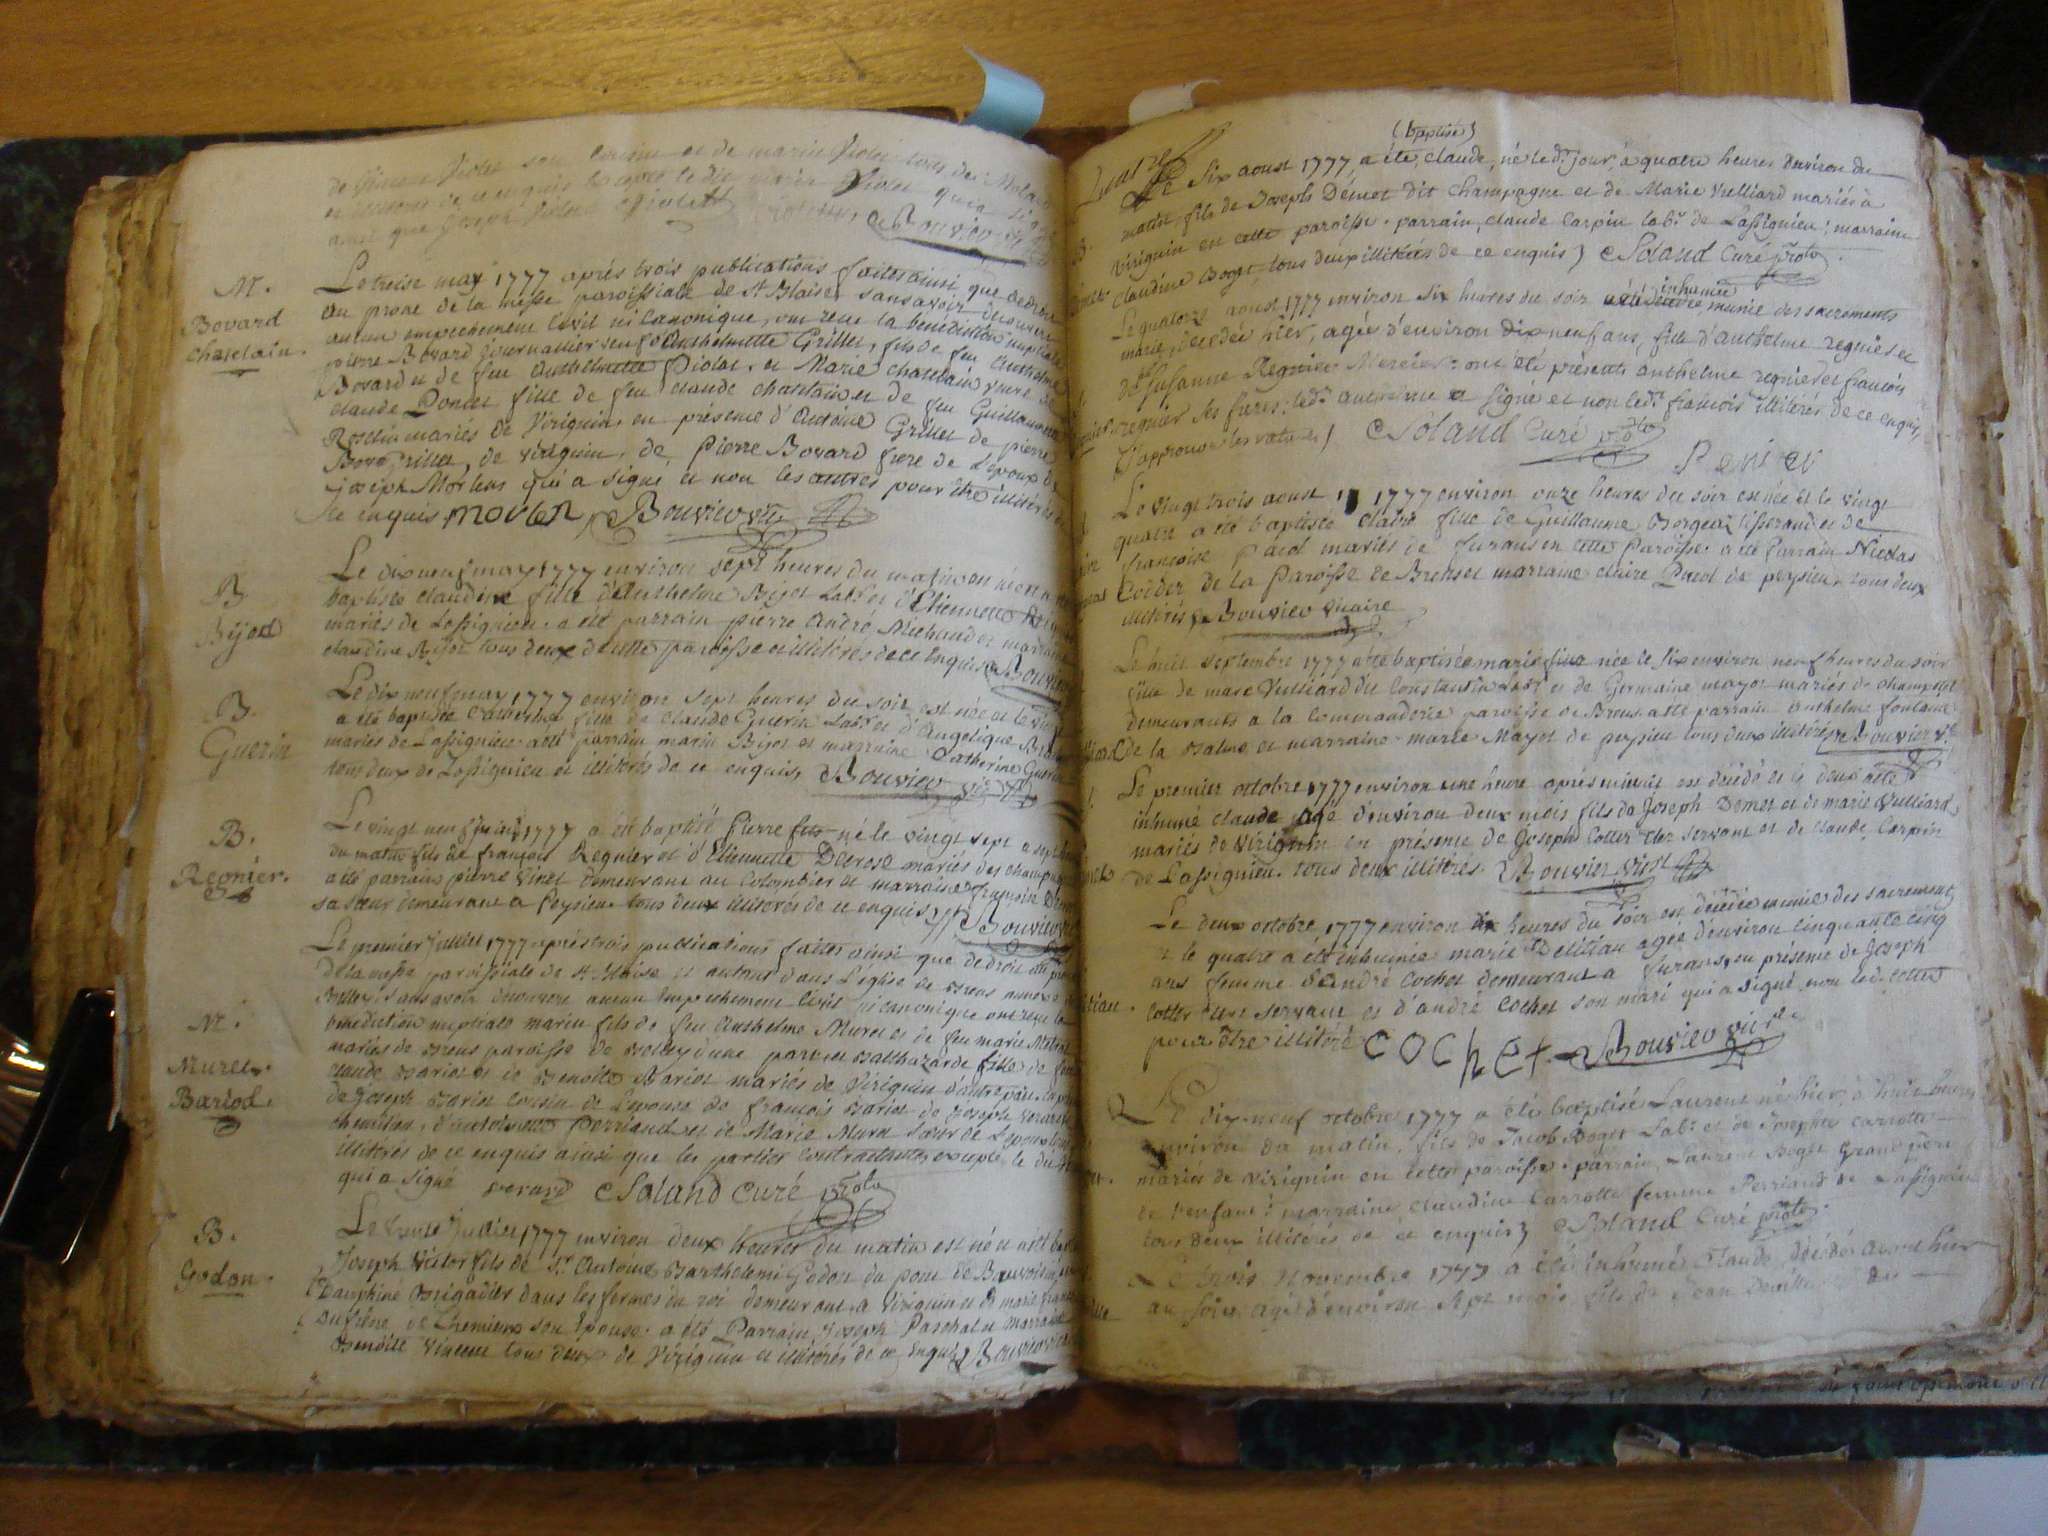 de Simon Violet son cousin et de marin Violet tous de
ainsi que Joseph
Bouvier
M.
Bovard
chatelain.
Le treise may 1777 après trois publications faites ainsi que de droit
au prone de la messe paroissiale de St Blaise, sans avoir découvert
aucun empechement Civil ni Canonique, ont reçu la benediction nuptiale
pierre Bovard journallier veuf d'Anthelmette Grillet, fils de feu Anthelme
Bovard et de feu Anthelmette Piolat, et Marie chatelain veuve de
claude Poncet fille de feu claude chatelain et de feu Guillaumette
mariés de Virignin, en présence d'Antoine Grillet de pierre
Grillet, de virignin, de Pierre Bovard frere de L'epoux de
joseph Morlen qui a signé et non les autres pour être illitérés de
ce enquis morlen, Bouvier vic
B
Bijod
Le dix neuf may 1777 environ sept heures du matin est née et a été
baptisée claudine fille d'Anthelme Bijot Labr et d'Etiennette
mariés de Lassignieu. a été parrain pierre André Michaud et marraine
claudine Bijot tous deux de cette paroisse et illitérés de ce Enquis Bouvier
B.
Guerin
Le dix neuf may 1777 environ sept heures du soir est née et le
a été baptisée Catherine fille de Claude Guerin Labr et d'Angelique
mariés de Lassignieu. a été parrain marin Bijot et marraine Catherine Guerin
tous deux de Lassignieu et illitérés de ce enquis, Bouvier vic
B.
Regnier.
Le vingt neuf 1777 a été baptisé Pierre fils né le vingt sept a sept
du matin fils de françois Regnier et d'Etiennette Decrose mariés des
a été parrain pierre Vinet demeurant au Colombier et marraine françoise
sa sœur demeurant a Peysieu tous deux illiterés de ce enquis Bouvier
M.
Muret.
Bariod.
Le premier juillet 1777 après trois publications faites ainsi que de droit au prone
de la messe paroissiale de St Blaise et autant dans L'église de Brens annexe
Belley, sans avoir découvert aucun Empechement Civil ni canonique ont reçu la
bénédiction nuptiale marin fils de feu Anthelme Muret et de feu marie
mariés de Brens paroisse de Belley d'une part et Balthazarde fille de feu
claude Bariot et de Benoite Bariot mariés de Virignin d'autre part.
de Joseph Bariot cousin de L'epouse de françois Bariot de Joseph
d'antoine Perriand et de Marie Muret sœur de L'epoux
illitérés de ce enquis ainsi que les parties contractantes, excepté le dit
qui a signé Soland Curé
B.
Godon.
Le trente juillet 1777 environ deux heures du matin est né et a été
Joseph Victor fils de Sr Antoine Barthelemi Godon du pont de Beauvoisin
Dauphiné Brigadier dans les fermes du roi demeurant a Virignin et de marie
son Epouse. a été Parrain Joseph Paschal et marraine
Benoite Vincent tous deux de Virignin et illitérés de ce Enquis Bouvier
(baptisé)
Le Six aoust 1777, a été, claude, né led. jour, à quatre heures environ du
matin fils de Joseph Démet dit champagne et de Marie Vulliard mariés à
Virignin en cette paroisse. parrain, claude Carpin labr. de Lassignieu; marraine
claudine Boget, tous deux illitérés de ce enquis) Soland Curé
Le quatorze aoust 1777 environ six heures du soir inhumée munie des sacrements
marie, decedée hier, agée d'environ dix neuf ans, fille d'anthelme regnier et
de Susanne Regnier Mercier: ont été présents anthelme regnier et francois
regnier ses freres; led. anthelme a signé et non led. francois illitéré de ce enquis,
Soland Curé
Le vingt trois aoust 1777 environ onze heures du soir est née et le vingt
quatre a été baptisée claire fille de Guillaume Borgeat tisserand et de
francoise Pacot mariés de furans en cette Paroisse. a été Parrain Nicolas
Coddet de la Paroisse de Brens et marraine claire Pacot de peysieu. tous deux
illitérés. Bouvier vicaire
Le huit septembre 1777 a été baptisée marie née le six environ neuf heures du soir
fille de marc Vulliard dit Constantin Labr et de Germaine mayot mariés de
demeurants a la Commanderie paroisse de Brens. a été parrain Anthelme fontaine
de la Balme et marraine marie Mayot de peysieu tous deux illitérés Bouvier vic
Le premier octobre 1777 environ une heure après minuit est décédé et le deux a été
inhumé claude agé d'environ deux mois fils de Joseph Demet et de marie Vulliard
mariés de Virignin en présence de Joseph Cotter clerc servant et de claude Carpin
de Lassignieu. tous deux illitérés. Bouvier vic
Le deux octobre 1777 environ dix heures du soir est décédée munie des sacrements
et le quatre a été inhumée marie agée d'environ cinquante cinq
ans femme d'André Cochet demeurant a furans, en présence de Joseph
Cotter clerc servant et d'andré Cochet son mari qui a signé non led. Cotter
pour être illitéré COCHET Bouvier vic
Le dix-neuf octobre 1777 a été baptisé Laurent né hier, à huit heures
environ du matin, fils de Jacob Boget Labr. et de Josephte carrotte
mariés de Virignin en cette paroisse. parrain, Laurent Boget Grand père
de l'enfant: marraine, claudine Carrotte femme Perriand de Lassignieu
tous deux illitérés de ce enquis) Soland Curé
Le trois Novembre 1777 a été inhumé Claude, décédé avant hier
au soir agé d'environ sept mois fils de Jean